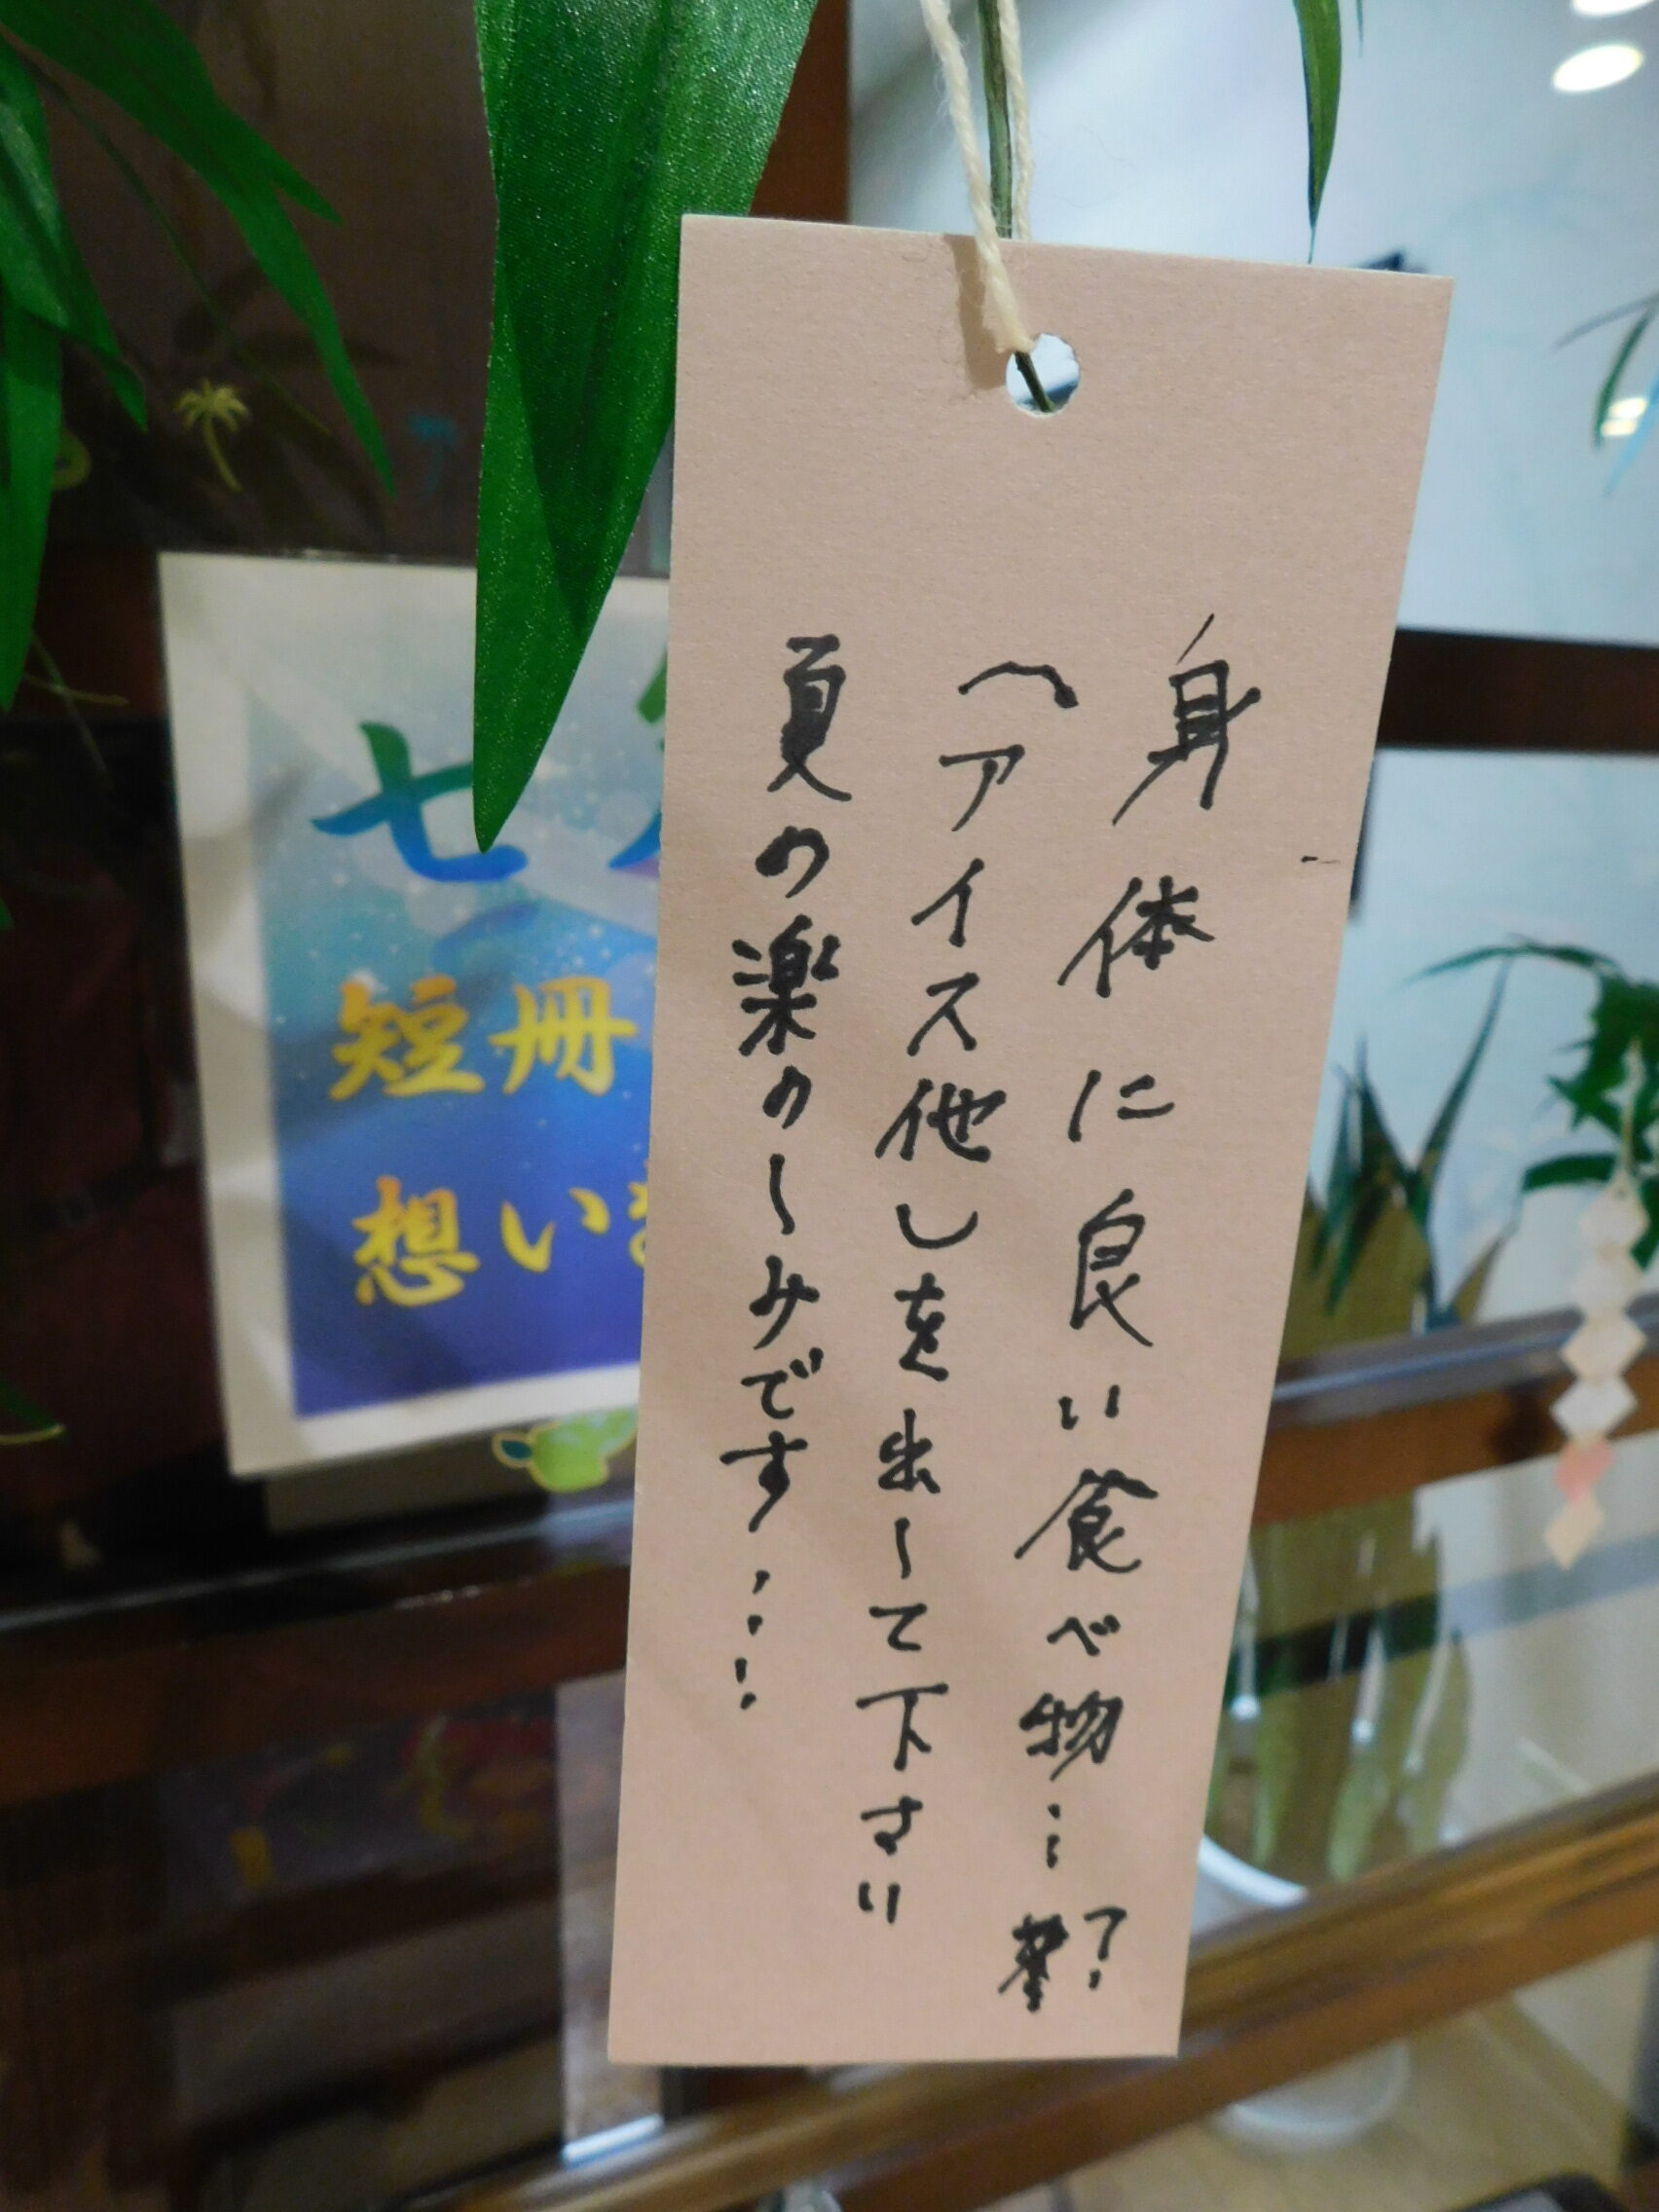 身体に良い食べ物…?
(アイス他)を出して下さい
夏の楽のしみです……
七
短冊
想い